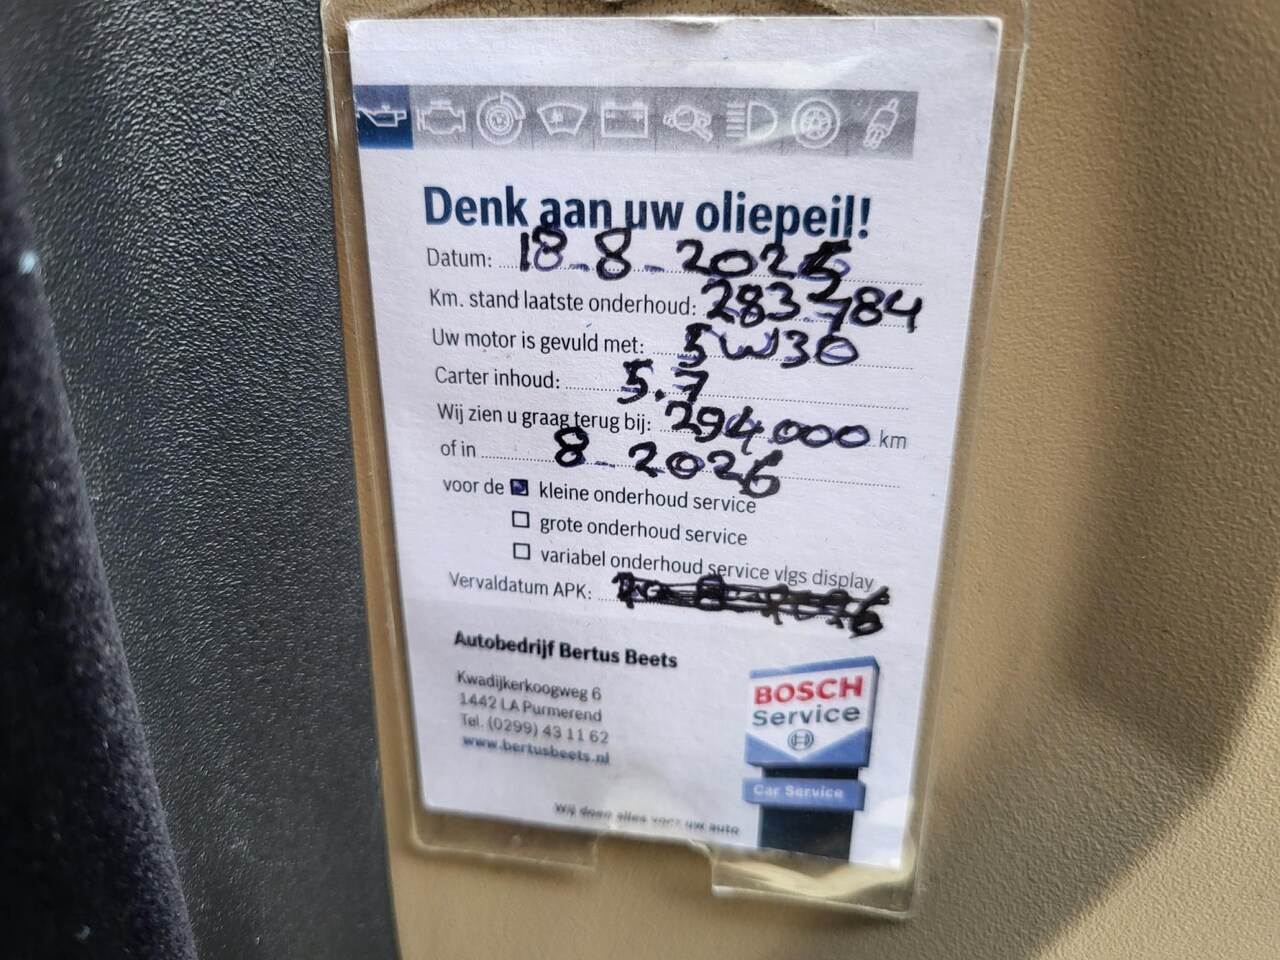 Denk aan uw oliepeil!
Datum: 18-8-2025
Km. stand laatste onderhoud: 283.784
Uw motor is gevuld met: 5W30
Carter inhoud: 5.7
Wij zien u graag terug bij: 294.000 km
of in 8-2026
voor de kleine onderhoud service
grote onderhoud service
variabel onderhoud service vlgs display
Vervaldatum APK:
Autobedrijf Bertus Beets
Kwadijkerkoogweg 6
1442 LA Purmerend
Tel. (0299) 43 11 62
www.bertusbeets.nl
BOSCH
Service
Car Service
Wij doen alles voor uw auto